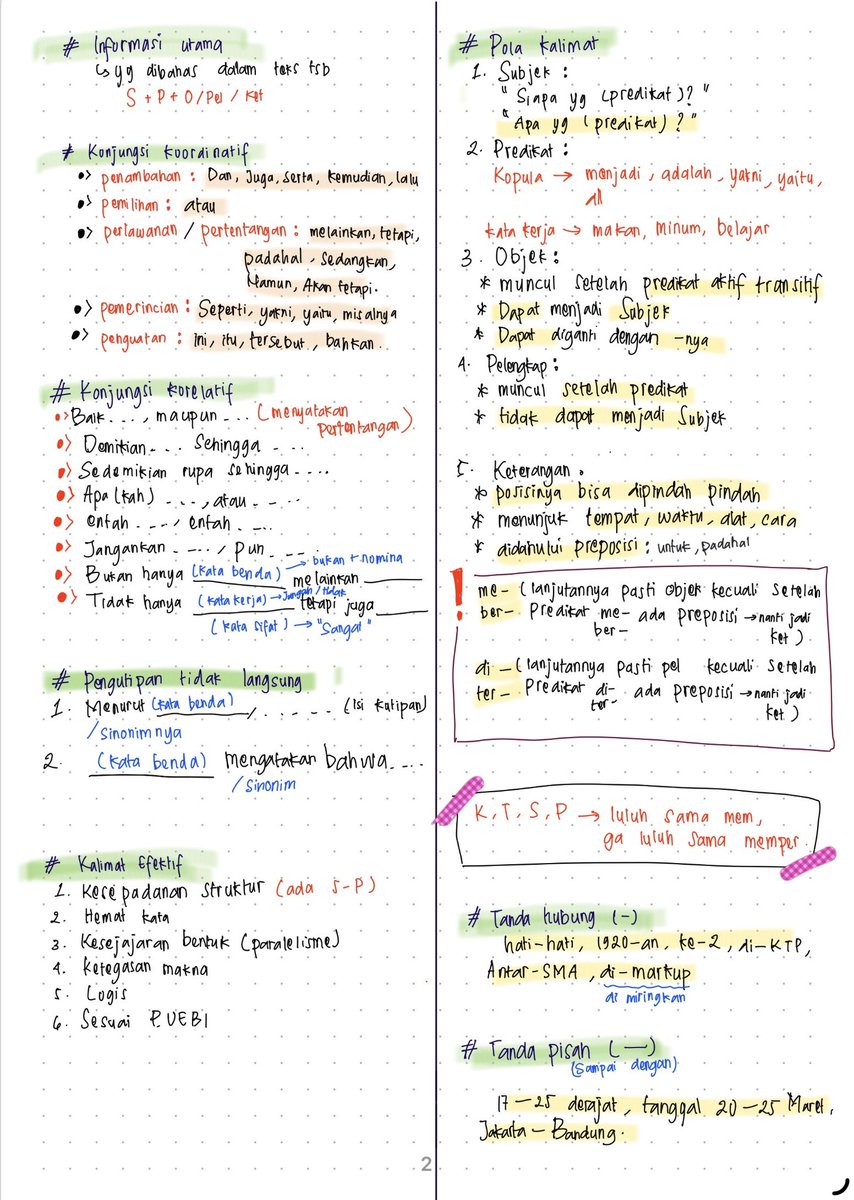 # Informasi utama
↳ yg dibahas dalam teks tsb
S + P + O / Pel / Ket
# Konjungsi koordinatif
•> penambahan : Dan, Juga, serta, kemudian, lalu
•> pemilihan : atau
•> perlawanan / pertentangan : melainkan, tetapi,
padahal, sedangkan,
Namun, Akan tetapi.
•> pemerincian : Seperti, yakni, yaitu, misalnya
•> penguatan : Ini, itu, tersebut, bahkan.
# Konjungsi korelatif
•> Baik ...., maupun .... (menyatakan
pertentangan)
•> Demikian .... Sehingga ....
•> Sedemikian rupa sehingga ....
•> Apa(kah) ...., atau ....
•> entah ...., entah ....
•> Jangankan ...., pun ....
•> Bukan hanya (kata benda) → bukan + nomina
melainkan ____
•> Tidak hanya (kata kerja) → Jangan / tidak
tetapi juga ____
(kata sifat) → "Sangat"
# Pengutipan tidak langsung
1. Menurut (kata benda) , ..... (Isi kutipan)
/sinonimnya
2. (kata benda) mengatakan bahwa ....
/sinonim
# Kalimat Efektif
1. Kesepadanan struktur (ada S-P)
2. Hemat kata
3. Kesejajaran bentuk (paralelisme)
4. Ketegasan makna
5. Logis
6. Sesuai PUEBI
# Pola kalimat
1. Subjek :
"Siapa yg (predikat)?"
"Apa yg (predikat)?"
2. Predikat :
Kopula → menjadi, adalah, yakni, yaitu,
dll
kata kerja → makan, minum, belajar
3. Objek :
* muncul setelah predikat aktif transitif
* Dapat menjadi Subjek
* Dapat diganti dengan -nya
4. Pelengkap :
* muncul setelah predikat
* tidak dapat menjadi Subjek
5. Keterangan .
* posisinya bisa dipindah pindah
* menunjuk tempat, waktu, alat, cara
* didahului preposisi : untuk, padahal
! me- (lanjutannya pasti objek kecuali setelah
ber- predikat me- ada preposisi → nanti jadi
ber- ket)
di- (lanjutannya pasti pel kecuali setelah
ter- Predikat di- ada preposisi → nanti jadi
ter- ket)
K, T, S, P → luluh sama mem,
ga luluh sama memper
# Tanda hubung (-)
hati-hati, 1920-an, ke-2, di-KTP,
Antar-SMA, di-markup
di miringkan
# Tanda pisah (—)
(Sampai dengan)
17—25 derajat, tanggal 20—25 Maret,
Jakarta—Bandung.
2